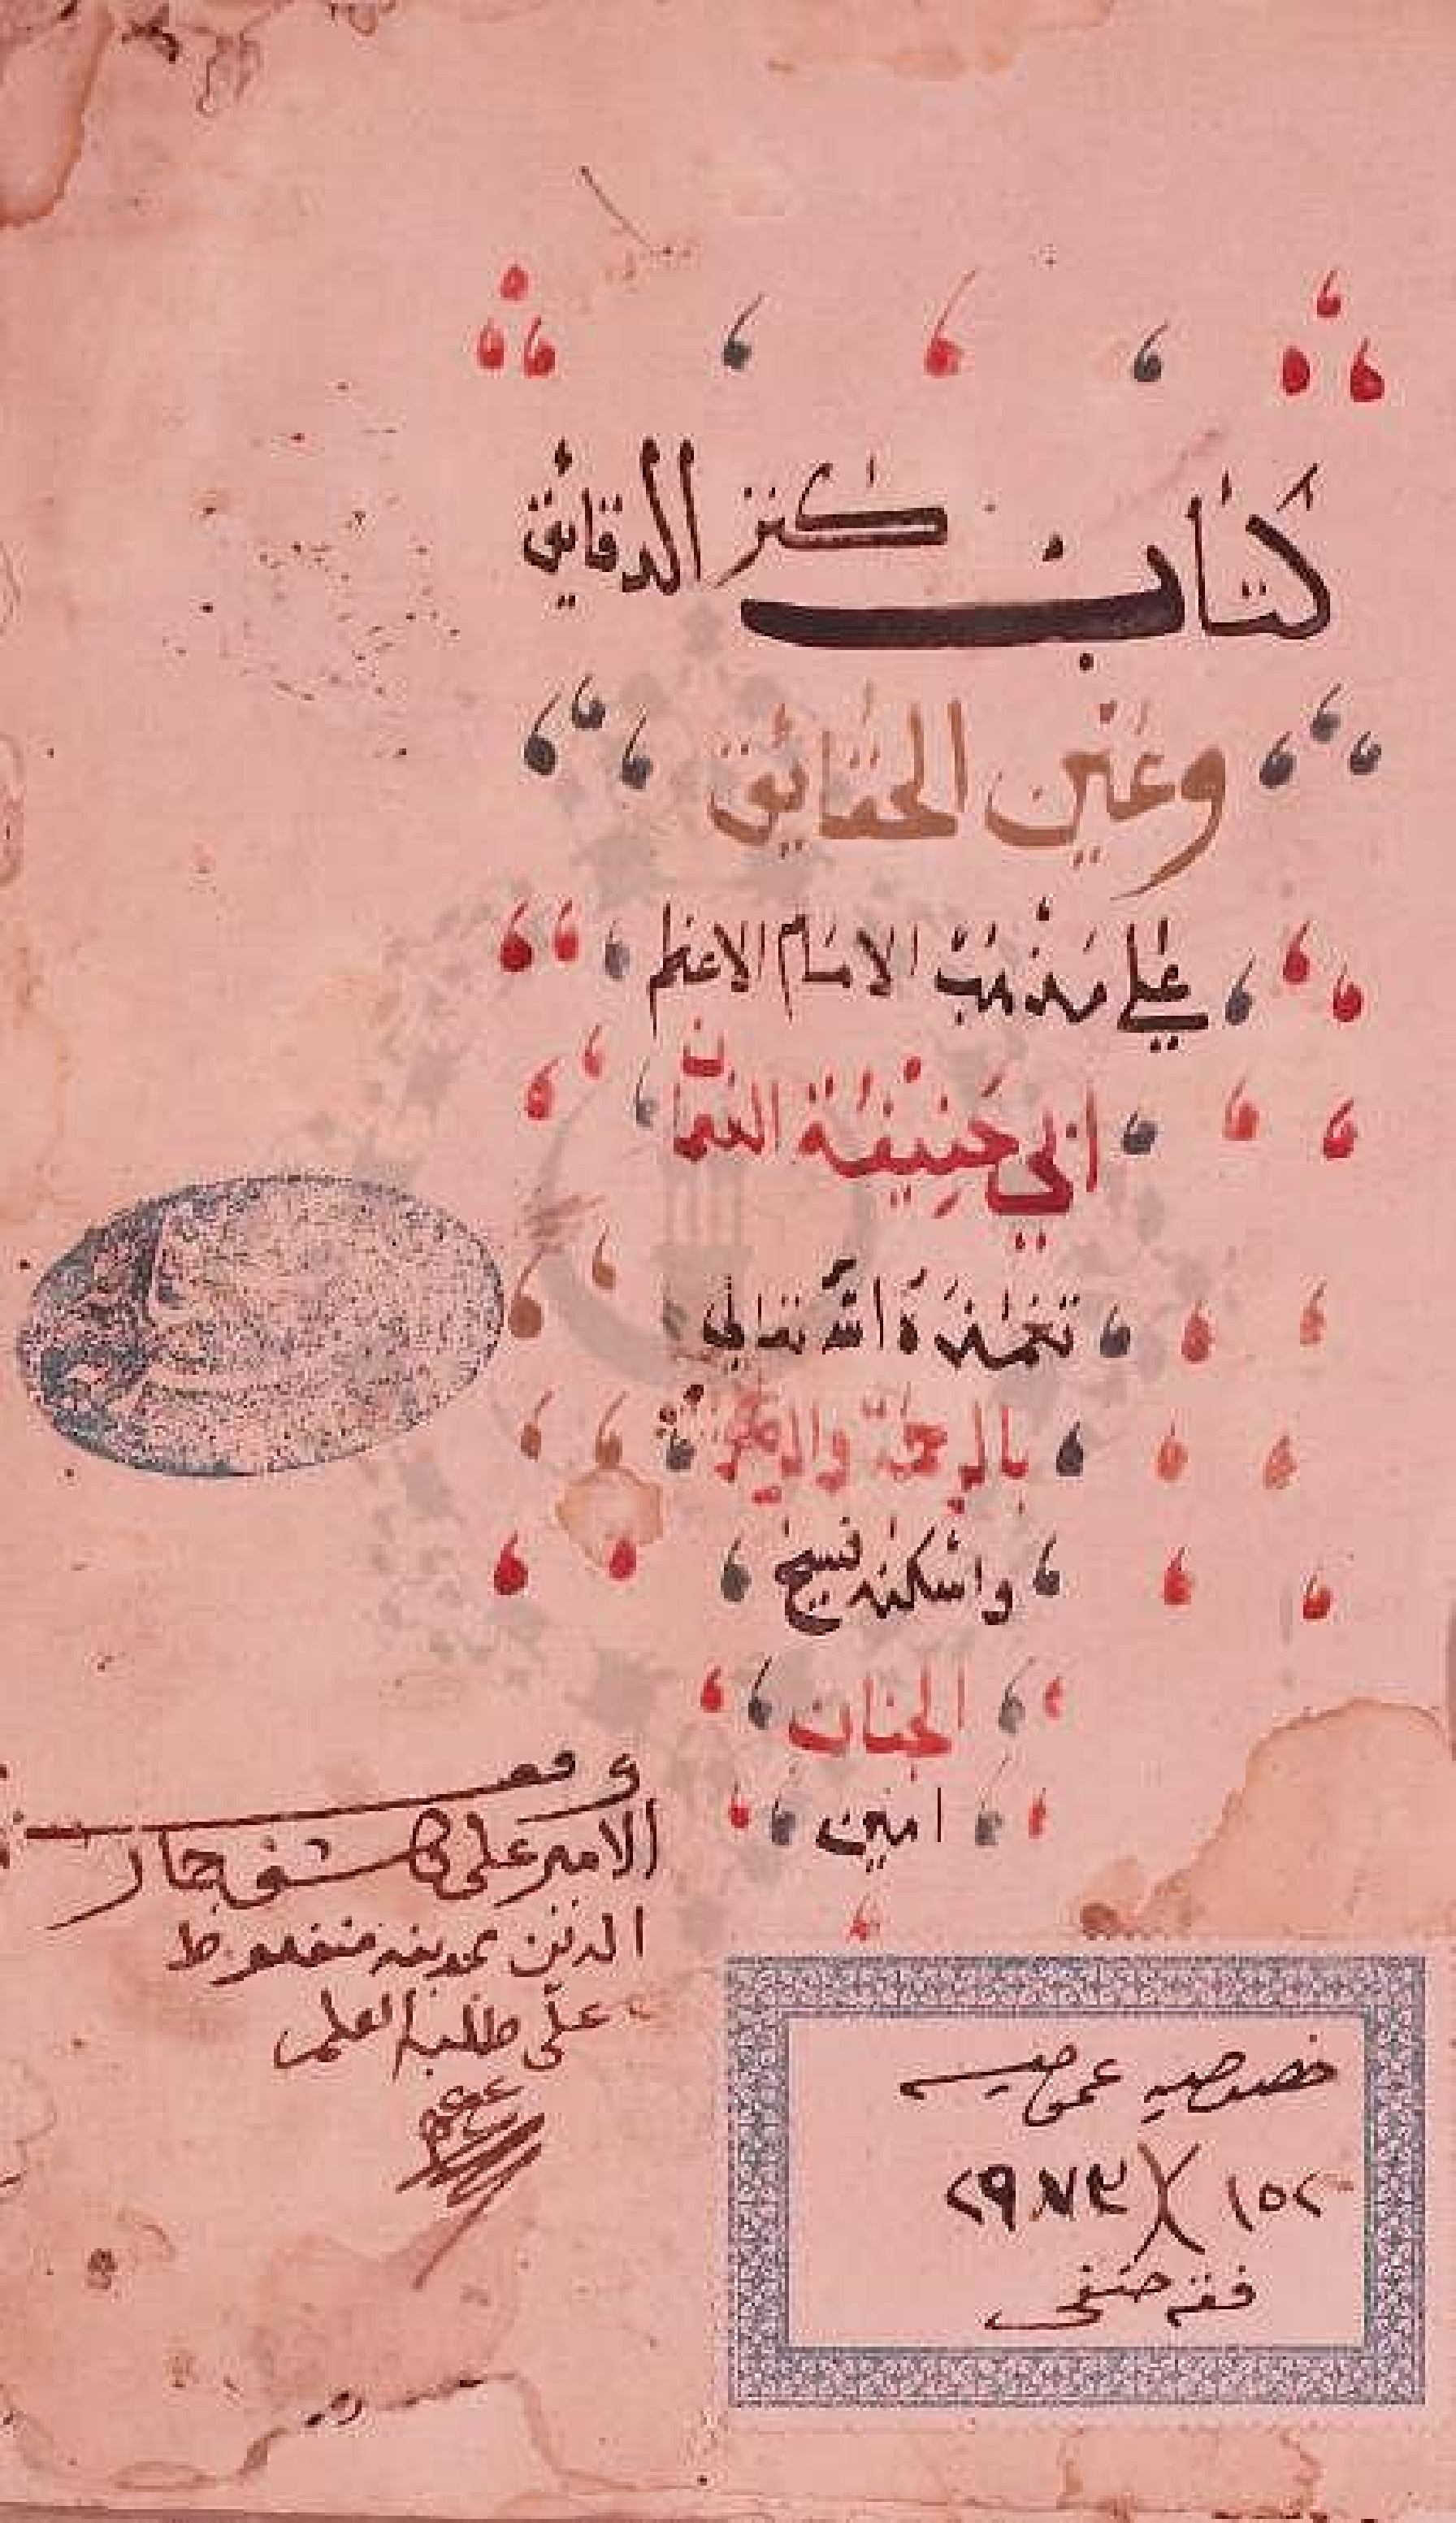 كتاب كنز الدقائق
وعين الحقائق
علي مذهب الامام الاعظم
ابي حنيفة النعمان
تغمده الله تعالي
بالرحمة والرضوان
واسكنه فسيح
الجنان
امين
وقف
الامير علي كاشف جمال
الدين بمدينة منفلوط
علي طلبة العلم
خصوصية عمومية
١٥٢ ٢٩٧٣
فقه حنفي